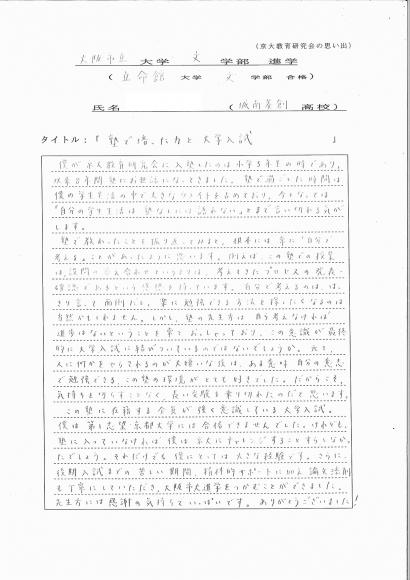 (京大教育研究会の思い出)
大阪市立 大学 文 学部 進学
( 立命館 大学 文 学部 合格)
氏名 ( 城南菱創 高校)
タイトル:「 塾で培った力と大学入試 」
僕が京大教育研究会に入塾したのは小学5年生の時であり、
以来8年間塾にお世話になってきました。塾で過ごした時間は
僕の学生生活の中で大きなウエイトを占めており、今となっては
"自分の学生生活は塾なしには語れない"とまで言い切れる気が
します。
塾で教わったことを振り返ってみると、根本には常に"自分で
考える"ことがあったように思います。例えば、この塾での授業
は、設問の答え合わせというよりは、考えてきたプロセスの発表・
確認であるという感想を持っています。自分で考えるのは、は、
きり言って面倒だし、楽に勉強できる方法を探したくなるのは
当然かもしれません。しかし、塾の先生方は自ら考えなければ
進歩はないということを常におっしゃっており、この意識が最終
的に大学入試に結びついているのではないでしょうか。元々、
人に何かをやらされるのが大嫌いな僕は、ある意味自分の意志
で勉強できる、この塾の環境がとても好きでした。だからこそ、
気持ちを切らすことなく、長い受験を乗り切れたのだと思います。
この塾に在籍する全員が強く意識している大学入試。
僕は第1志望京都大学には合格できませんでした。けれども、
塾に入っていなければ僕は京大にチャレンジすることすらしなかっ
たでしょう。それだけでも僕にとっては大きな経験です。さらに、
後期入試までの苦しい期間、精神的サポートに加え論文添削
も丁寧にしていただき、大阪市大進学をつかむことができました。
先生方には感謝の気持ちでいっぱいです。ありがとうございました!